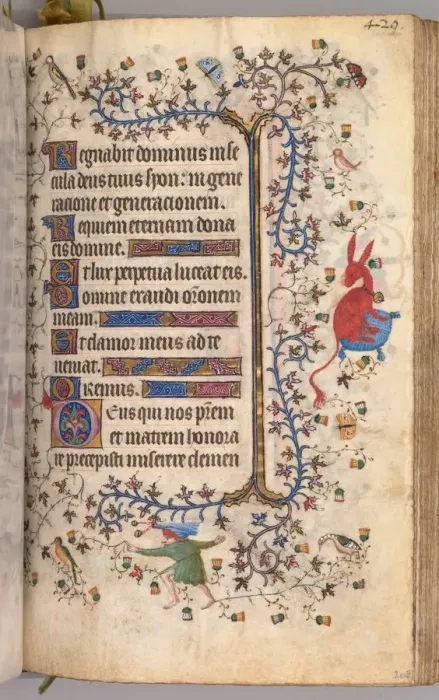 429.
Regnabit dominus in se
cula deus tuus syon: in gene
racione et generacionem.
Requiem eternam dona
eis domine.
Et lux perpetua luceat eis.
Domine exaudi or̄onem
meam.
Et clamor meus ad te
ueniat.
Oremus.
Deus qui nos pr̄em
et matrem honora
re precepisti miserere clemen
205